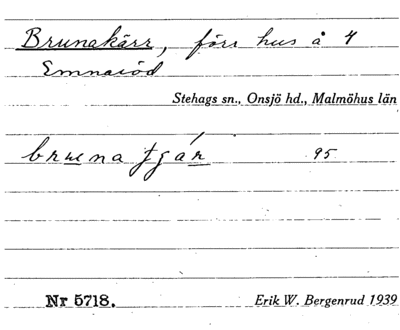 Brunakärr, förr hus å 4
Emnaröd
Stehags sn., Onsjö hd., Malmöhus län
bruna 95
Nr 5718. Erik W. Bergenrud 1939